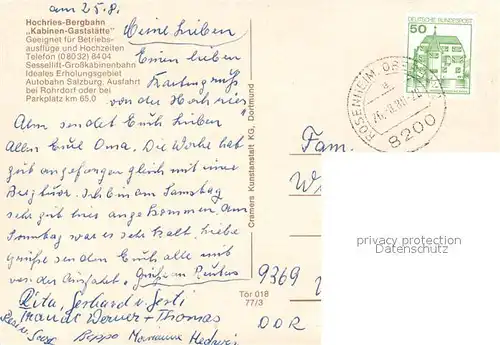 am 25.8.
Hochries-Bergbahn
„Kabinen-Gaststätte"
Geeignet für Betriebs-
ausflüge und Hochzeiten
Telefon (08032) 8404
Sessellift-Großkabinenbahn
Ideales Erholungsgebiet
Autobahn Salzburg, Ausfahrt
bei Rohrdorf oder bei
Parkplatz km 65,0
Meine Lieben
Einen lieben
Kartengruß
von der Hochries
Alm sendet Euch Lieben
Allen Eure Oma. Die Woche hat
gut angefangen gleich mit einer
Bergtour. Ich bin am Samstag
sehr gut hier angekommen. Am
Sonntag war es sehr kalt. Liebe
Grüße senden Euch alle mit
von der
Rita, Gerhard u.
Werner + Thomas
Beppo Marianne Hedwig
Cramers Kunstanstalt KG, Dortmund
Tör 018
77/3
DEUTSCHE BUNDESPOST
50
ROSENHEIM
a
8200
Fam.
W
9369
DDR
privacy protection
Datenschutz